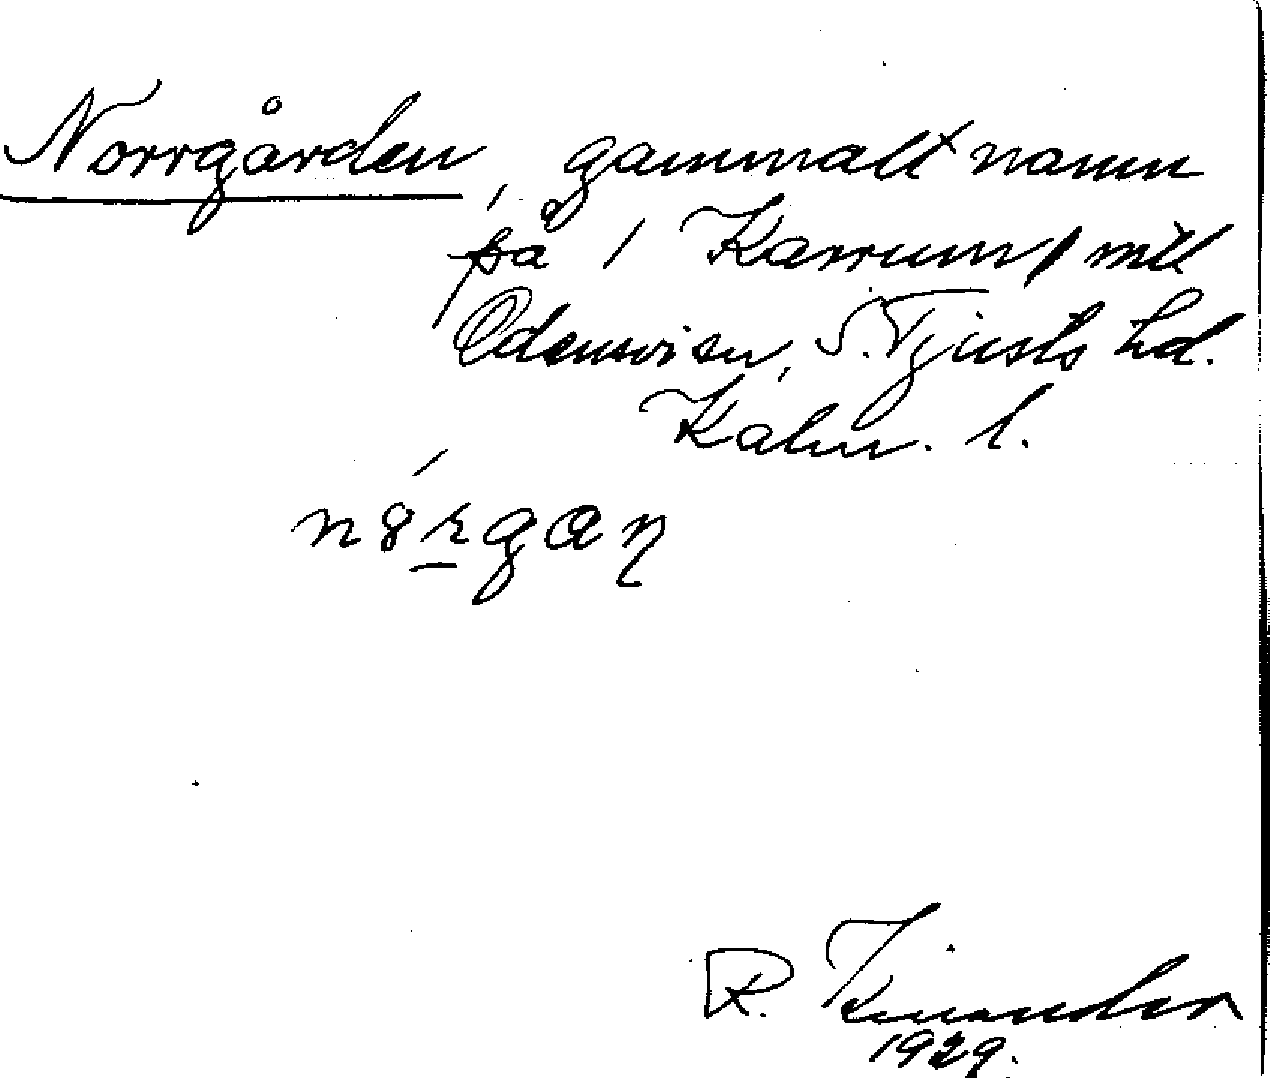 Norrgården, gammalt namn
på 1 Karrum, mtl
Odensvien, S. Tjusts hd.
Kalm. l.
nörgan
R. Kinander
1929.